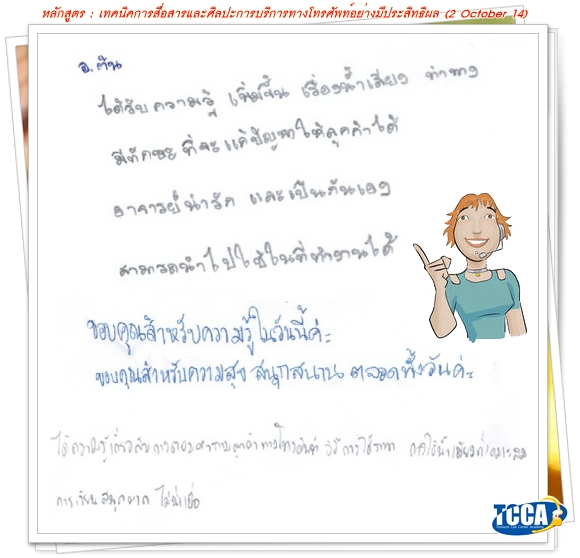 หลักสูตร : เทคนิคการสื่อสารและศิลปะการบริการทางโทรศัพท์อย่างมีประสิทธิผล (2 October 14)
อ.ต้น
ได้รับความรู้ เพิ่มขึ้น เรื่องน้ำเสียง ท่าทาง
มีทักษะ ที่จะแก้ปัญหาให้ลูกค้าได้
อาจารย์น่ารัก และเป็นกันเอง
สามารถนำไปใช้ในที่ทำงานได้
ขอบคุณสำหรับความรู้ในวันนี้ค่ะ
ขอบคุณสำหรับความสุข สนุกสนาน ตลอดทั้งวันค่ะ
ได้ความรู้เกี่ยวกับการตอบคำถามลูกค้าทางโทรศัพท์ วิธีการใช้ การใช้น้ำเสียงที่เหมาะสม
การเรียนสนุกมาก ไม่น่าเบื่อ
TCCA
Thailand Call Center Academy